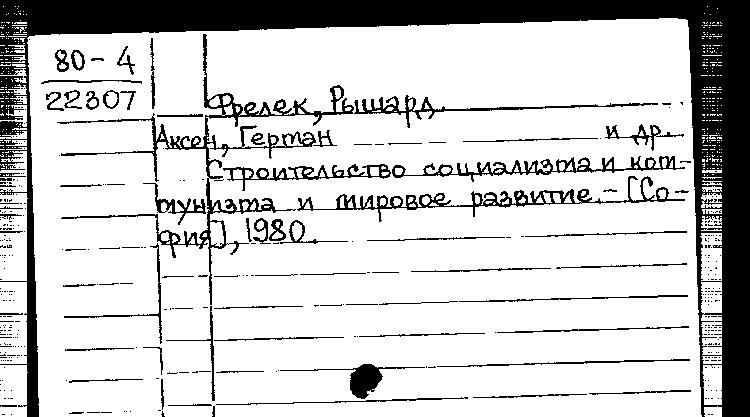 80-4
22307
Фрелек, Рышард.
Аксен, Герман и др.
Строительство социализма и ком-
мунизма и мировое развитие.-[Со-
фия], 1980.